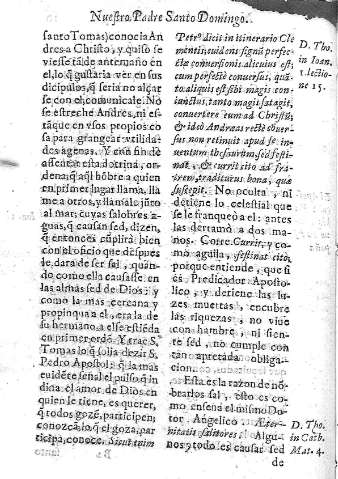 Nuestro Padre Santo Domingo.
santo Tomas) conocia An
dres a Christo, y quiso se
viesse tã de antemano en
el, lo q̃ gustaria ver en sus
dicipulos, q̃ seria no alçar
se con el, comunicale: No
se estreche Andres, ni es-
tãque en vsos propios co
sa para grangear vtilida-
des agenas. Y a fin de
assentar esta dotrina, or-
dena q̃ aql hõbre a quien
en primer lugar llama, lla
me a otros, y llamale jũto
al mar, cuyas salobres a-
guas, q̃ causan sed, dizen,
q̃ entonces cũplirà bien
con el oficio que despues
le dara de ser sal, quan-
do como ella causasse en
las almas sed de Dios: y
como la mas cercana y
propinqua a el, era la de
su hermano, a esse
en primer ordẽ. Y trae S.
Tomas lo q̃ solia dezir S.
Pedro Apostol: q̃ la mas
euidẽte señal q̃ pulso q̃ in
dica el amor de Dios en
quien le tiene, es querer,
q̃ todos gozẽ, participen,
conozcã lo q̃ el goza, par
ticipa, conoce. Sicut enim
Petrꝰ dicit in itinerario Cle
menti; euidens signũ perfec-
tæ conuersionis alicuius est;
cum perfectè conuersus, quã-
to aliquis est sibi magis con-
iunctus, tanto magis satagit,
conuertere eum ad Christũ,
& ideò Andræas rectè cõuer-
sus non retinuit apud se in-
uentum thesaurũ, sed festi-
nat, & currit citò ad fra-
trem, traditurus bona, quæ
suscepit. No oculta, ni
detiene lo celestial que
se le franqueò a el: antes
las derramò a dos ma-
nos. Corre. Currit, y co-
mo aguila, festinat citò,
porque entiende, que si
es Predicador Aposto-
lico, y detiene las lu-
zes muertas, encubre
las riquezas, no viue
con hambre, ni sien-
te sed, no cumple con
tan apretada obliga-
cion.
Esta es la razon de nõ-
brarlos sal, esto es co-
mo enseña el mismo Do-
tor Angelico. Æter-
nitatis salitores: Algu-
nos y todo es causar sed
de
D. Tho.
in Ioan.
1. lectio-
ne 15.
D. Tho.
in Cath.
Mat. 4.